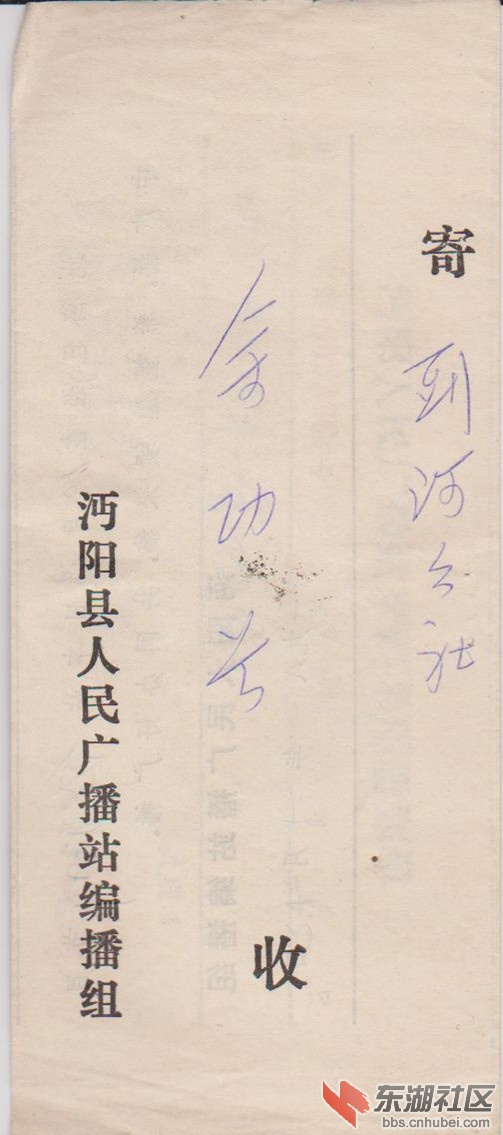 寄
剅河公社
余功
收
沔阳县人民广播站编播组
东湖社区
bbs.cnhubei.com